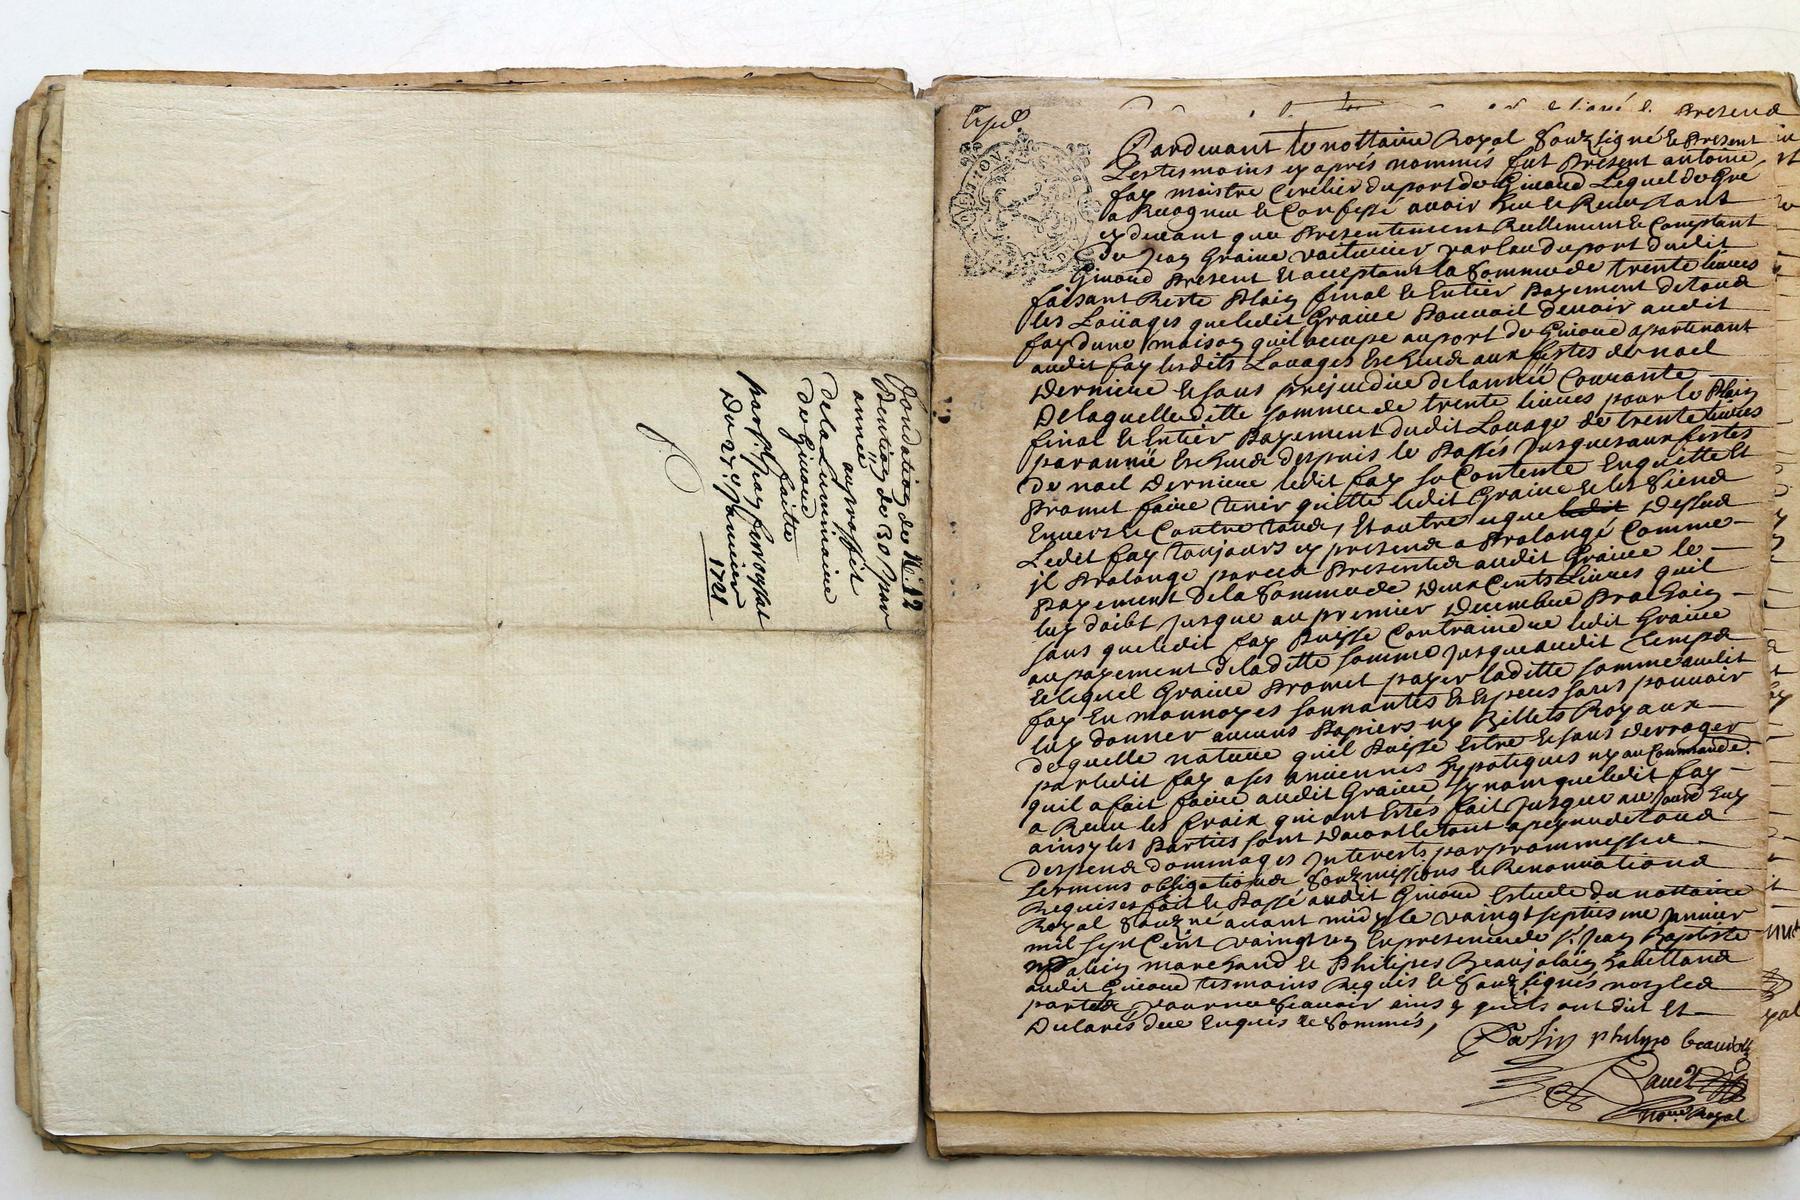 Fondation de N. 12
Pention de 30 s par
année au proffit
de la Luminaire
de Givord
faitte
par sr Jean ferroussat
Du 27e Janvier
1721
Exped
Pardevant le nottaire Royal Souzsigné et Present
Les tesmoins cy aprés nommés fut Present antoine
fay maistre Cerclier du port de Givord Lequel de Gre
a Recognu et Confessé avoir heu et Receu tant
cy devant que Presentement Reellement et Comptant
De Jean Graive voiturier par Eau du port dudit
Givord Present et acceptant la Somme de trente livres
faisant Reste Plain final et Entier payement de tous
les Loüages que ledit Graive Pouvoit devoir audit
fay d'une maison quil occupe au port de Givord apartenant
audit fay lesdits Louages Escheus aux festes de noel
Derniere et sans prejudice de lannée Courante
De laquelle ditte somme de trente livres pour le Plain
final et Entier Payement dudit Louage de trente livres
par année Escheus despuis le Passés Jusques aux festes
de noel Derniere ledit fay se Contente En quitte Et
Promet faire tenir quitte ledit Graive et les Siens
Envers et Contre tous, Et outre ce que Dessus
Ledit fay toujours cy present a Prolongé Comme
jl Prolonge par ces Presentes audit Graive le
payement de la Somme de Deux Cents Livres quil
luy doibt Jusque au premier Decembre Prochain
sans que ledit fay Puisse Contraindre ledit Graive
au payement de laditte somme Jusque audit temps
Et lequel Graive Promet payer laditte somme audit
fay En monnoyes sonnantes et Especes sans pouvoir
luy donner aucuns Papiers ny Billets Royaux
de quelle nature quil Puisse Estre et sans derroger
par ledit fay a ses anciennes hypotiques ny au Commande
quil a fait faire audit Graive sy non que ledit fay
a Receu les fraix qui ont Estés fait Jusque au jourdhuy
ainsy les Parties sont Dacort le tout a peyne de tous
despens dommages Interests par prommesses
sermens obligations Souzmissions et Renonciations
Requises fait et Passé audit Givord Estude du nottaire
Royal Souzné avant midy le vaingt septiesme Janvier
mil sept Cent vaingt un En presence de sr Jean Baptiste
marchand et Philipes Beaujolain habittans
audit Givord tesmoins Requis et Souzsignés non les
parties pour ne Scavoir ainsy quils ont dit et
Declarés de ce Enquis et Sommés,
philipe beaujol
Nore Royal